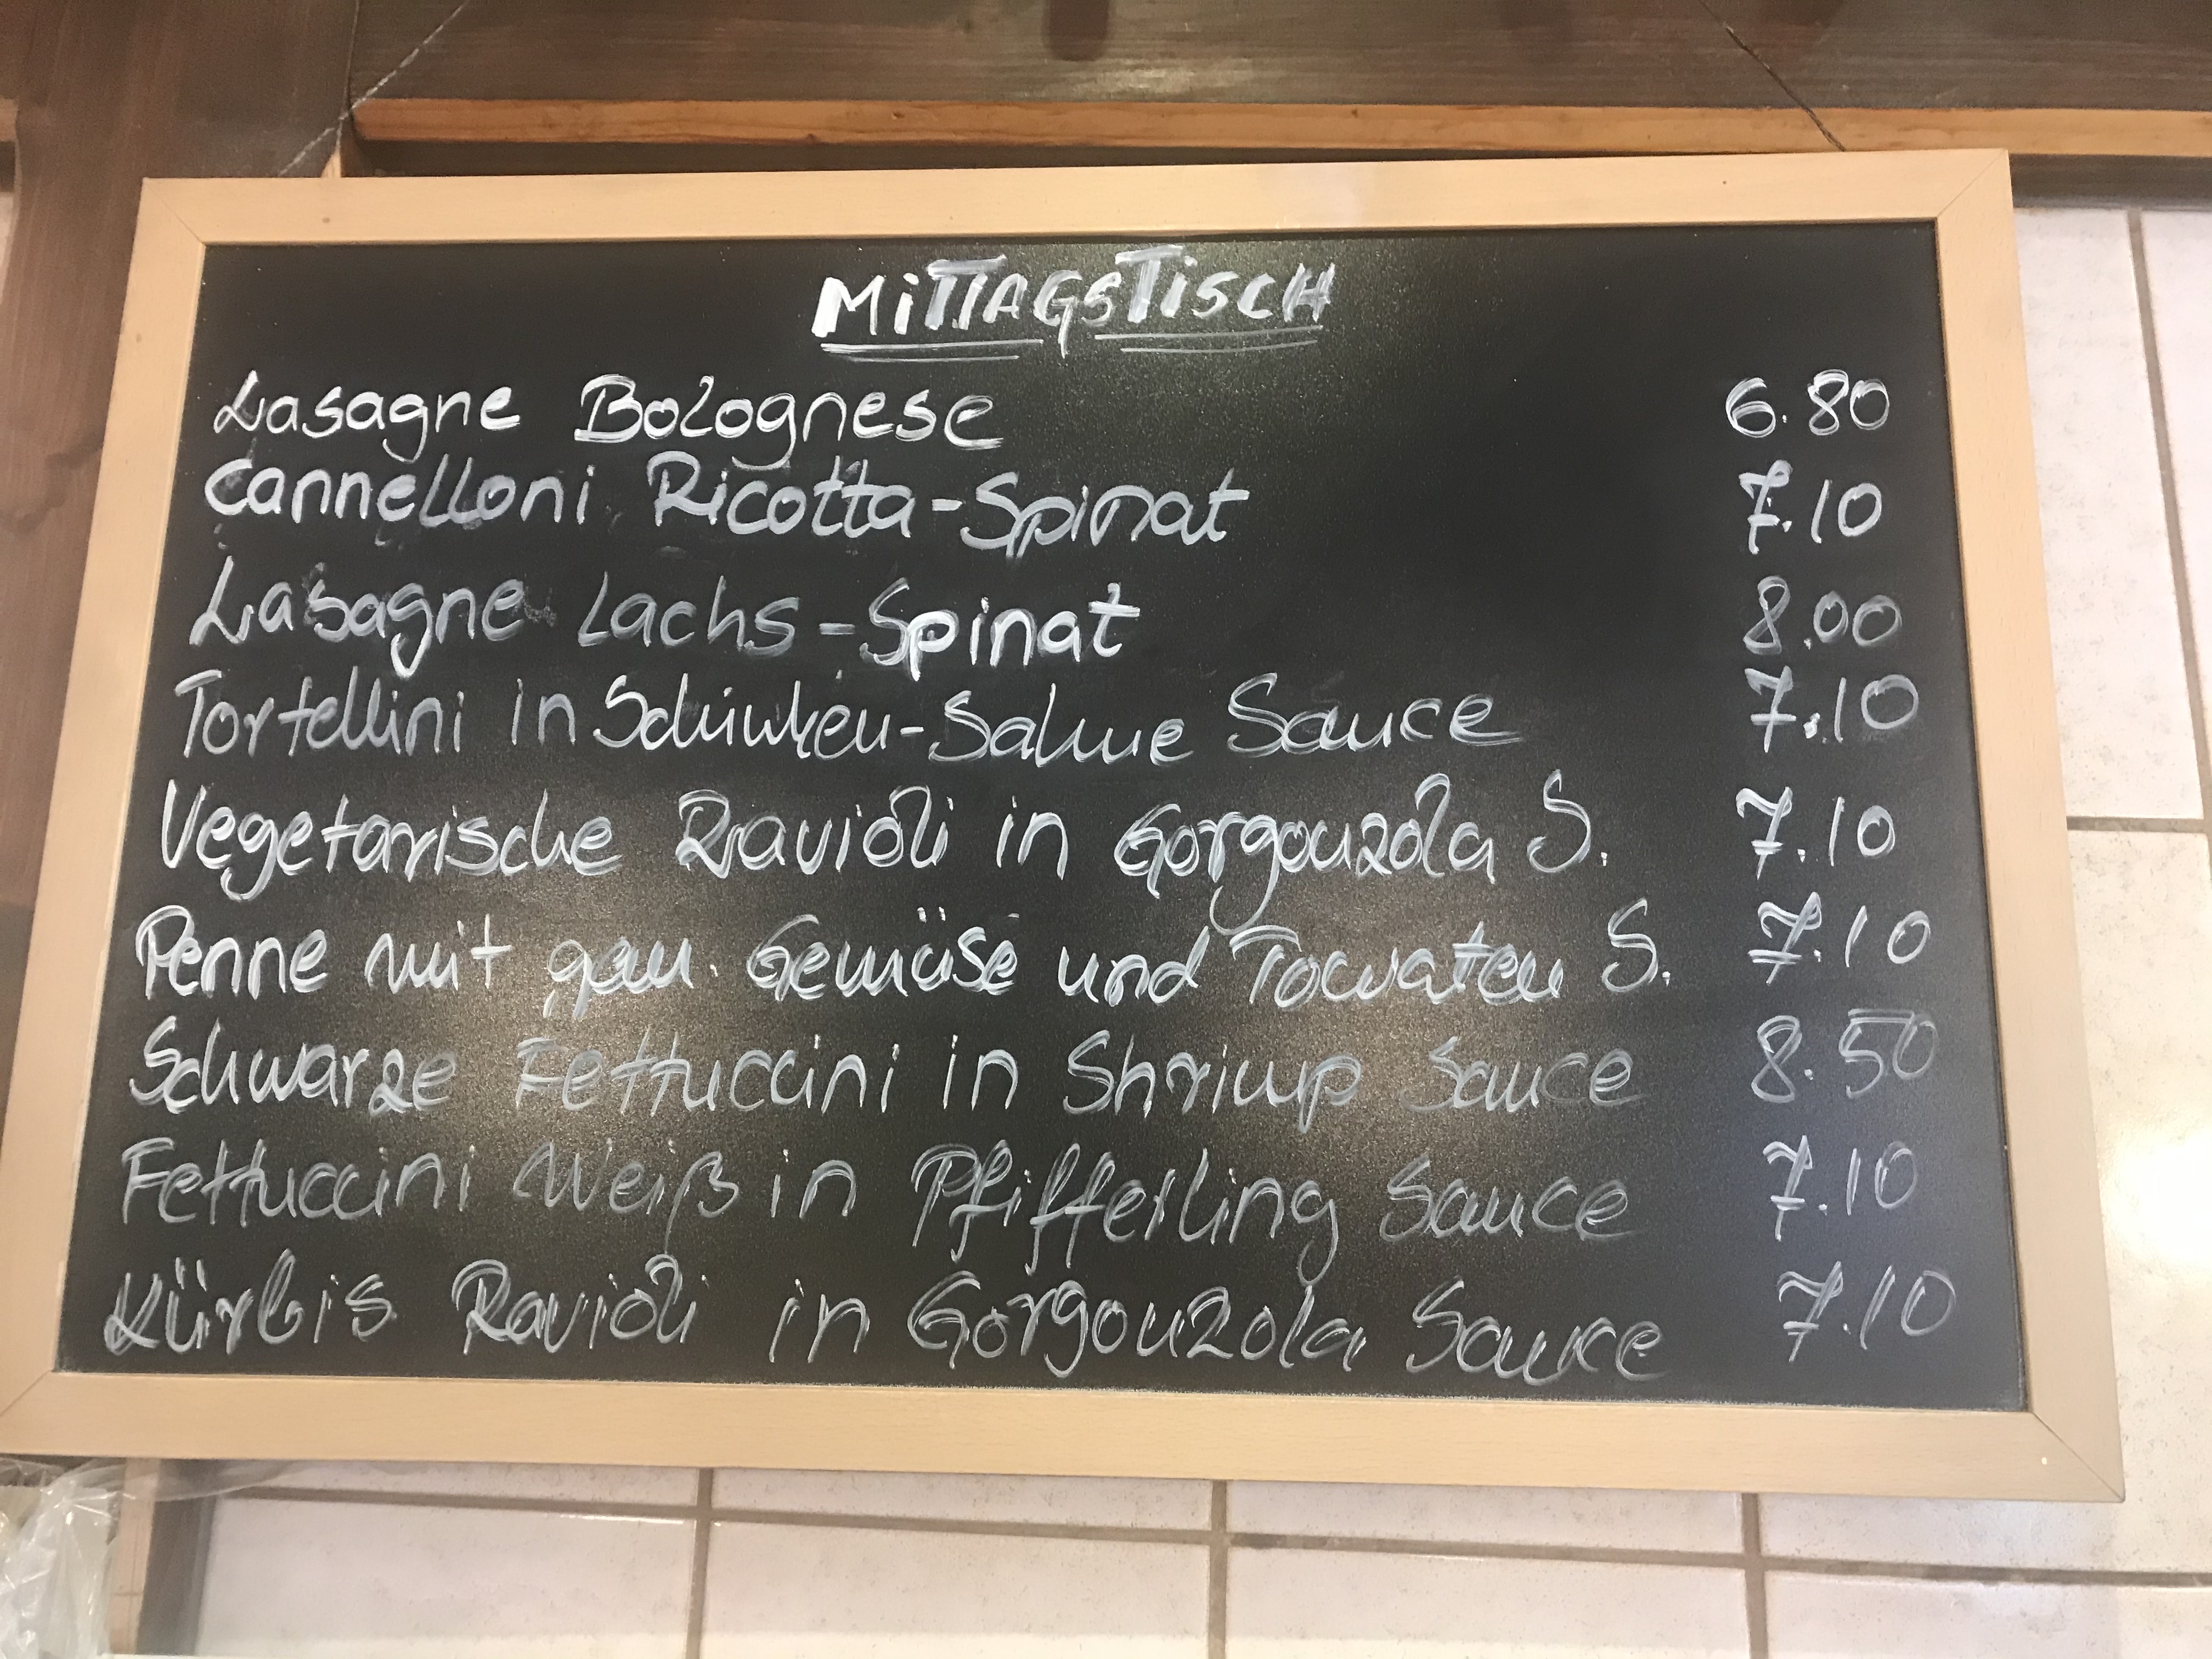 MiTTAGSTiSCH
Lasagne Bolognese 6.80
Cannelloni Ricotta-Spinat 7.10
Lasagne Lachs-Spinat 8.00
Tortellini in Schinken-Sahne Sauce 7.10
Vegetarische Ravioli in Gorgonzola S. 7.10
Penne mit gem. Gemüse und Tomaten S. 7.10
Schwarze Fettuccini in Shrimp Sauce 8.50
Fettuccini Weiß in Pfifferling Sauce 7.10
Kürbis Ravioli in Gorgonzola Sauce 7.10